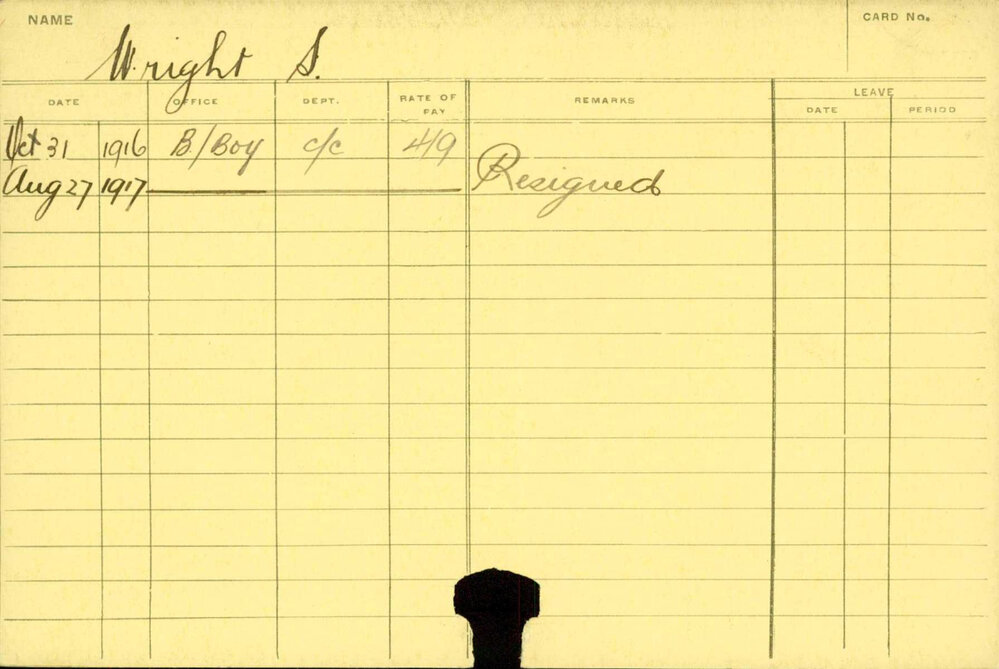 NAME
CARD No.
Wright S.
DATE OFFICE DEPT. RATE OF PAY REMARKS LEAVE
DATE PERIOD
Oct 31 1916 B/Boy c/c 4/9
Aug 27 1917 Resigned